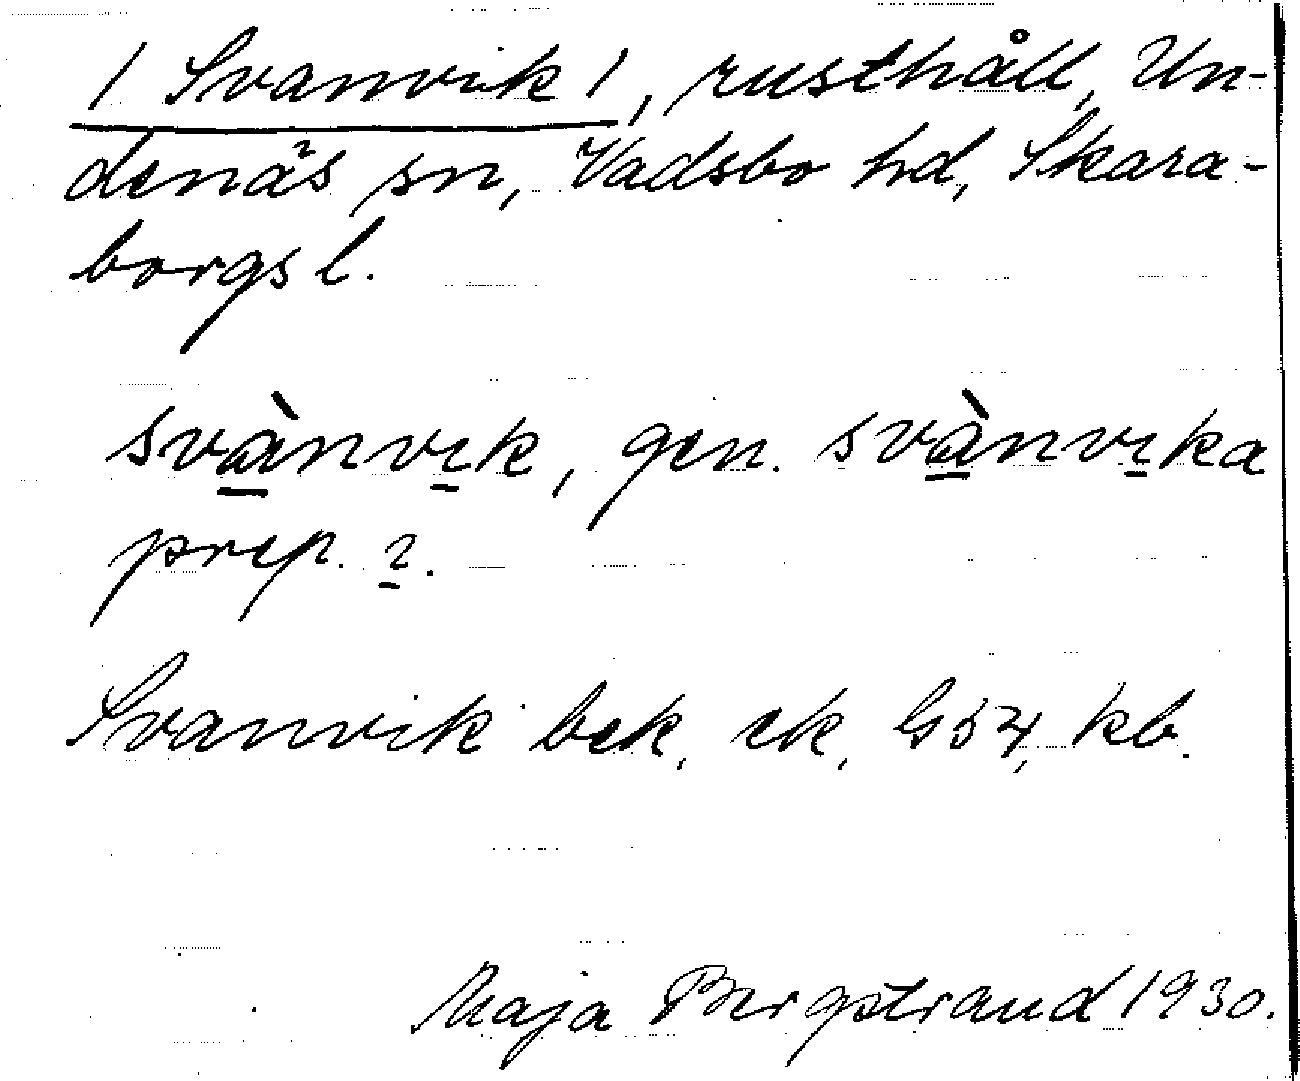 / Svanvik /, rusthåll, Un-
denäs sn, Vadsbo hd, Skara-
borgs l.
svànvık, gen. svànvıka
prep. ı.
Svanvik bek, ek, G54, kb.
Maja Bergstrand 1930.